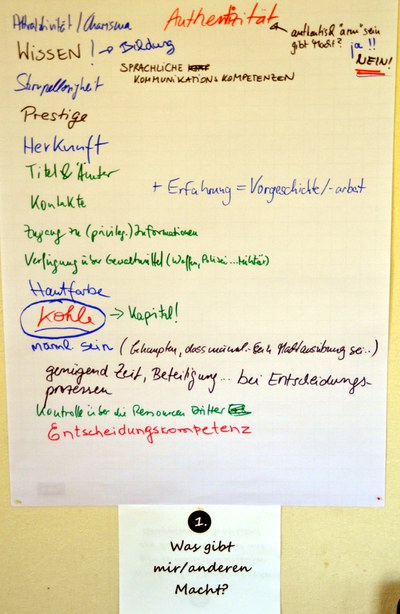 Attraktivität / Charisma
Authentizität
authentisch "arm" sein
gibt Macht?
ja !!
NEIN!
WISSEN! → Bildung
SPRACHLICHE
KOMMUNIKATIONSKOMPETENZEN
Skrupellosigkeit
Prestige
Herkunft
Titel & Ämter
+ Erfahrung = Vorgeschichte/-arbeit
Kontakte
Zugang zu (privileg.) Informationen
Verfügung über Gewaltmittel (Waffen, Polizei... Militär)
Hautfarbe
Kohle → Kapital!
männl. sein (behaupten, dass männl. sein Machtausübung sei..)
genügend Zeit, Beteiligung... bei Entscheidungs-
prozessen
Kontrolle über die Ressourcen Dritter
Entscheidungskompetenz
1.
Was gibt
mir/anderen
Macht?